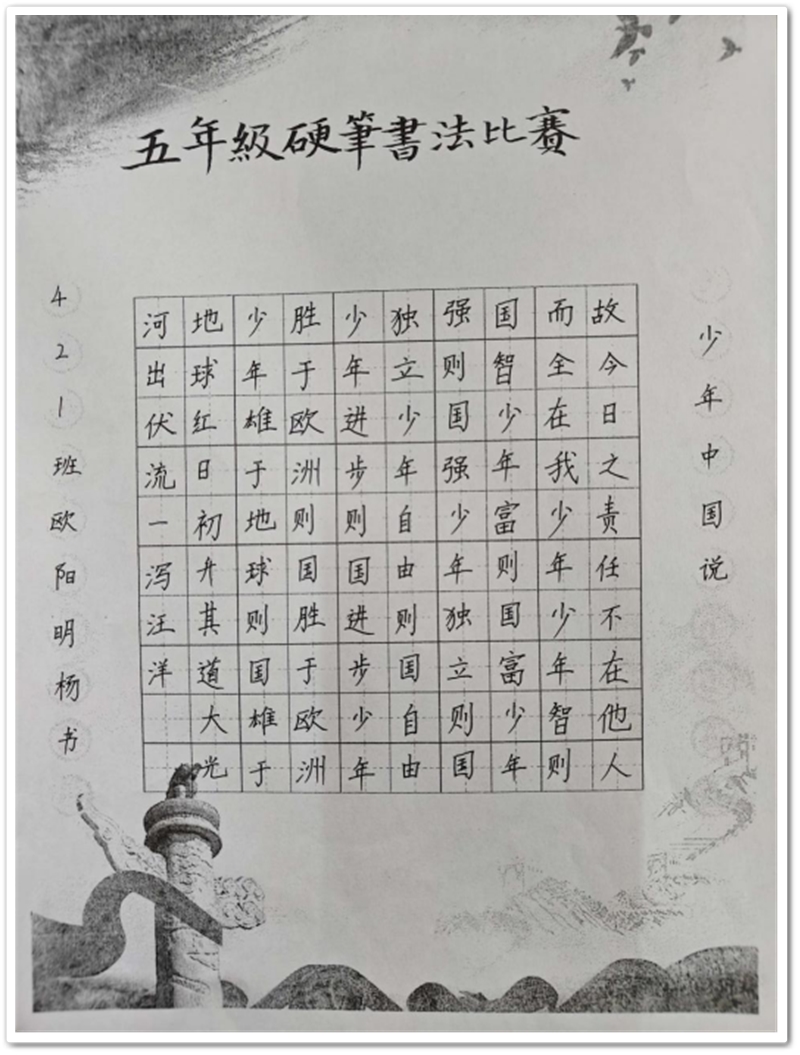 五年級硬筆書法比賽
少年中国说
故今日之责任不在他人
而全在我少年少年智则
国智少年富则国富少年
强则国强少年独立则国
独立少年自由则国自由
少年进步则国进步少年
胜于欧洲则国胜于欧洲
少年雄于地球则国雄于
地球红日初升其道大光
河出伏流一泻汪洋
421班欧阳明杨书